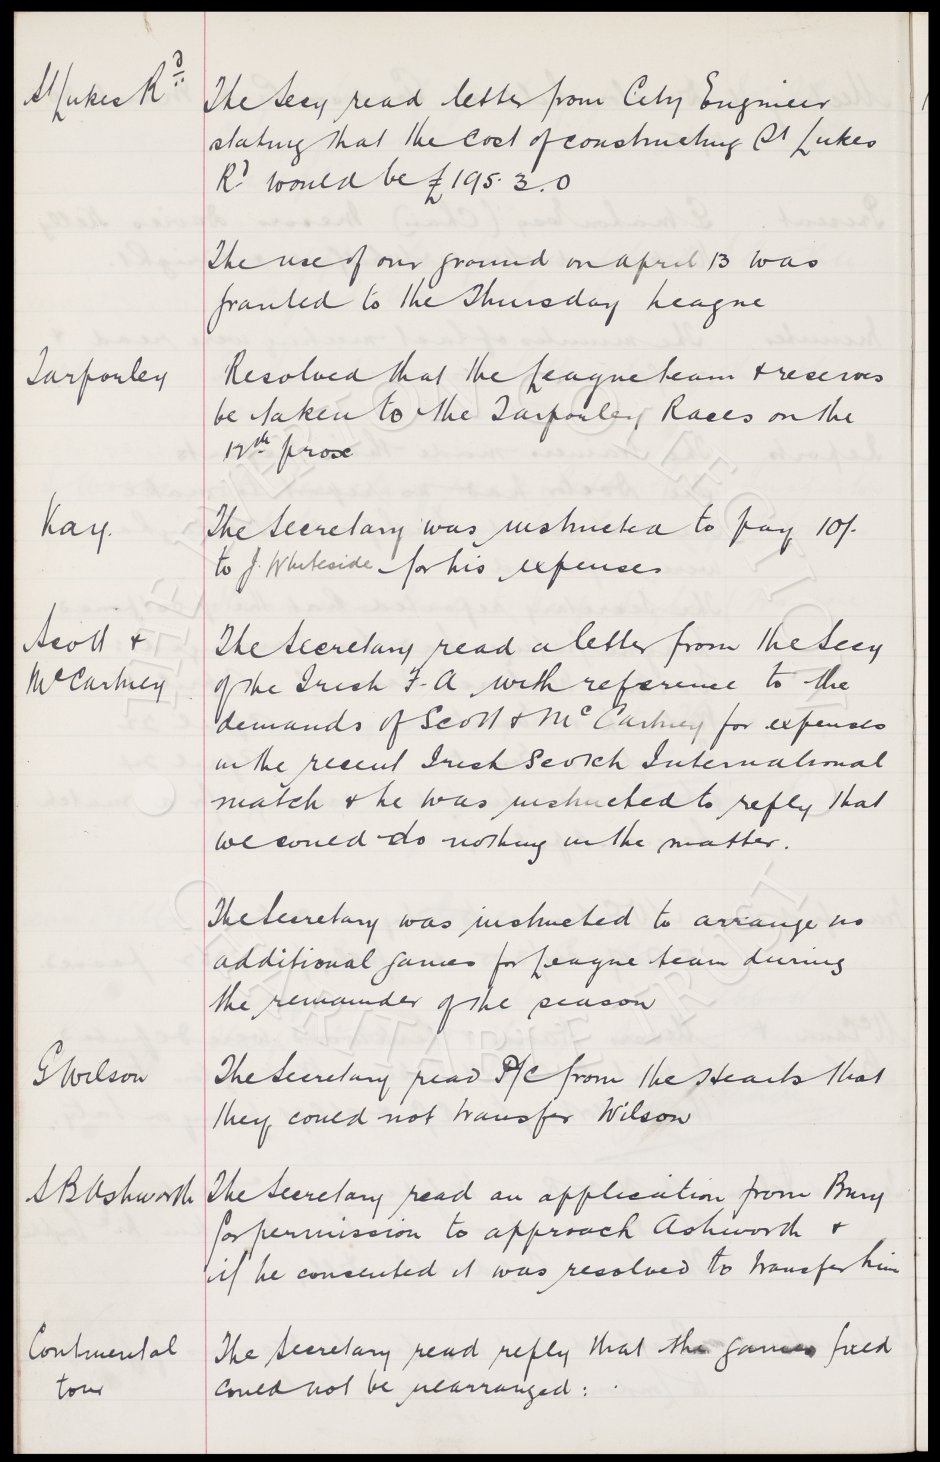 St Lukes Rd.
The Secy read letter from City Engineer
stating that the cost of constructing St Lukes
Rd would be £195.3.0
The use of our ground on April 13 was
granted to the Thursday League
Tarporley
Resolved that the League team & reserves
be taken to the Tarporley Races on the
12th prox
Kay.
The Secretary was instructed to pay 10/-
to J. Whiteside for his expenses
Scott &
McCartney
The Secretary read a letter from the Secy
of the Irish F.A with reference to the
demands of Scott & McCartney for expenses
in the recent Irish Scotch International
match & he was instructed to reply that
we could do nothing in the matter.
The Secretary was instructed to arrange no
additional games for League team during
the remainder of the season
G Wilson
The Secretary read P/C from the Hearts that
they could not transfer Wilson
S B Ashworth
The Secretary read an application from Bury
for permission to approach Ashworth &
if he consented it was resolved to transfer him
Continental
tour
The Secretary read reply that the games fixed
could not be rearranged: